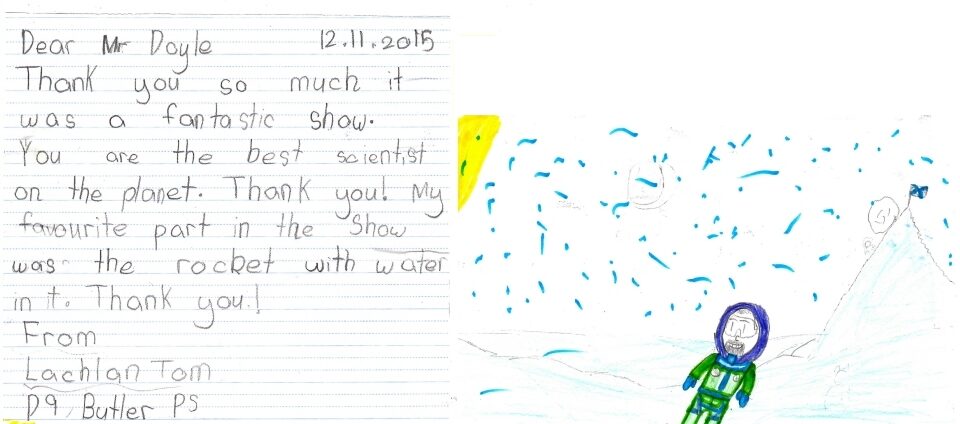 Dear Mr Doyle 12.11.2015
Thank you so much it
was a fantastic show.
You are the best scientist
on the planet. Thank you! My
favourite part in the Show
was the rocbet with water
in it. Thank you!
From
Lachlan Tom
D9, Butler PS